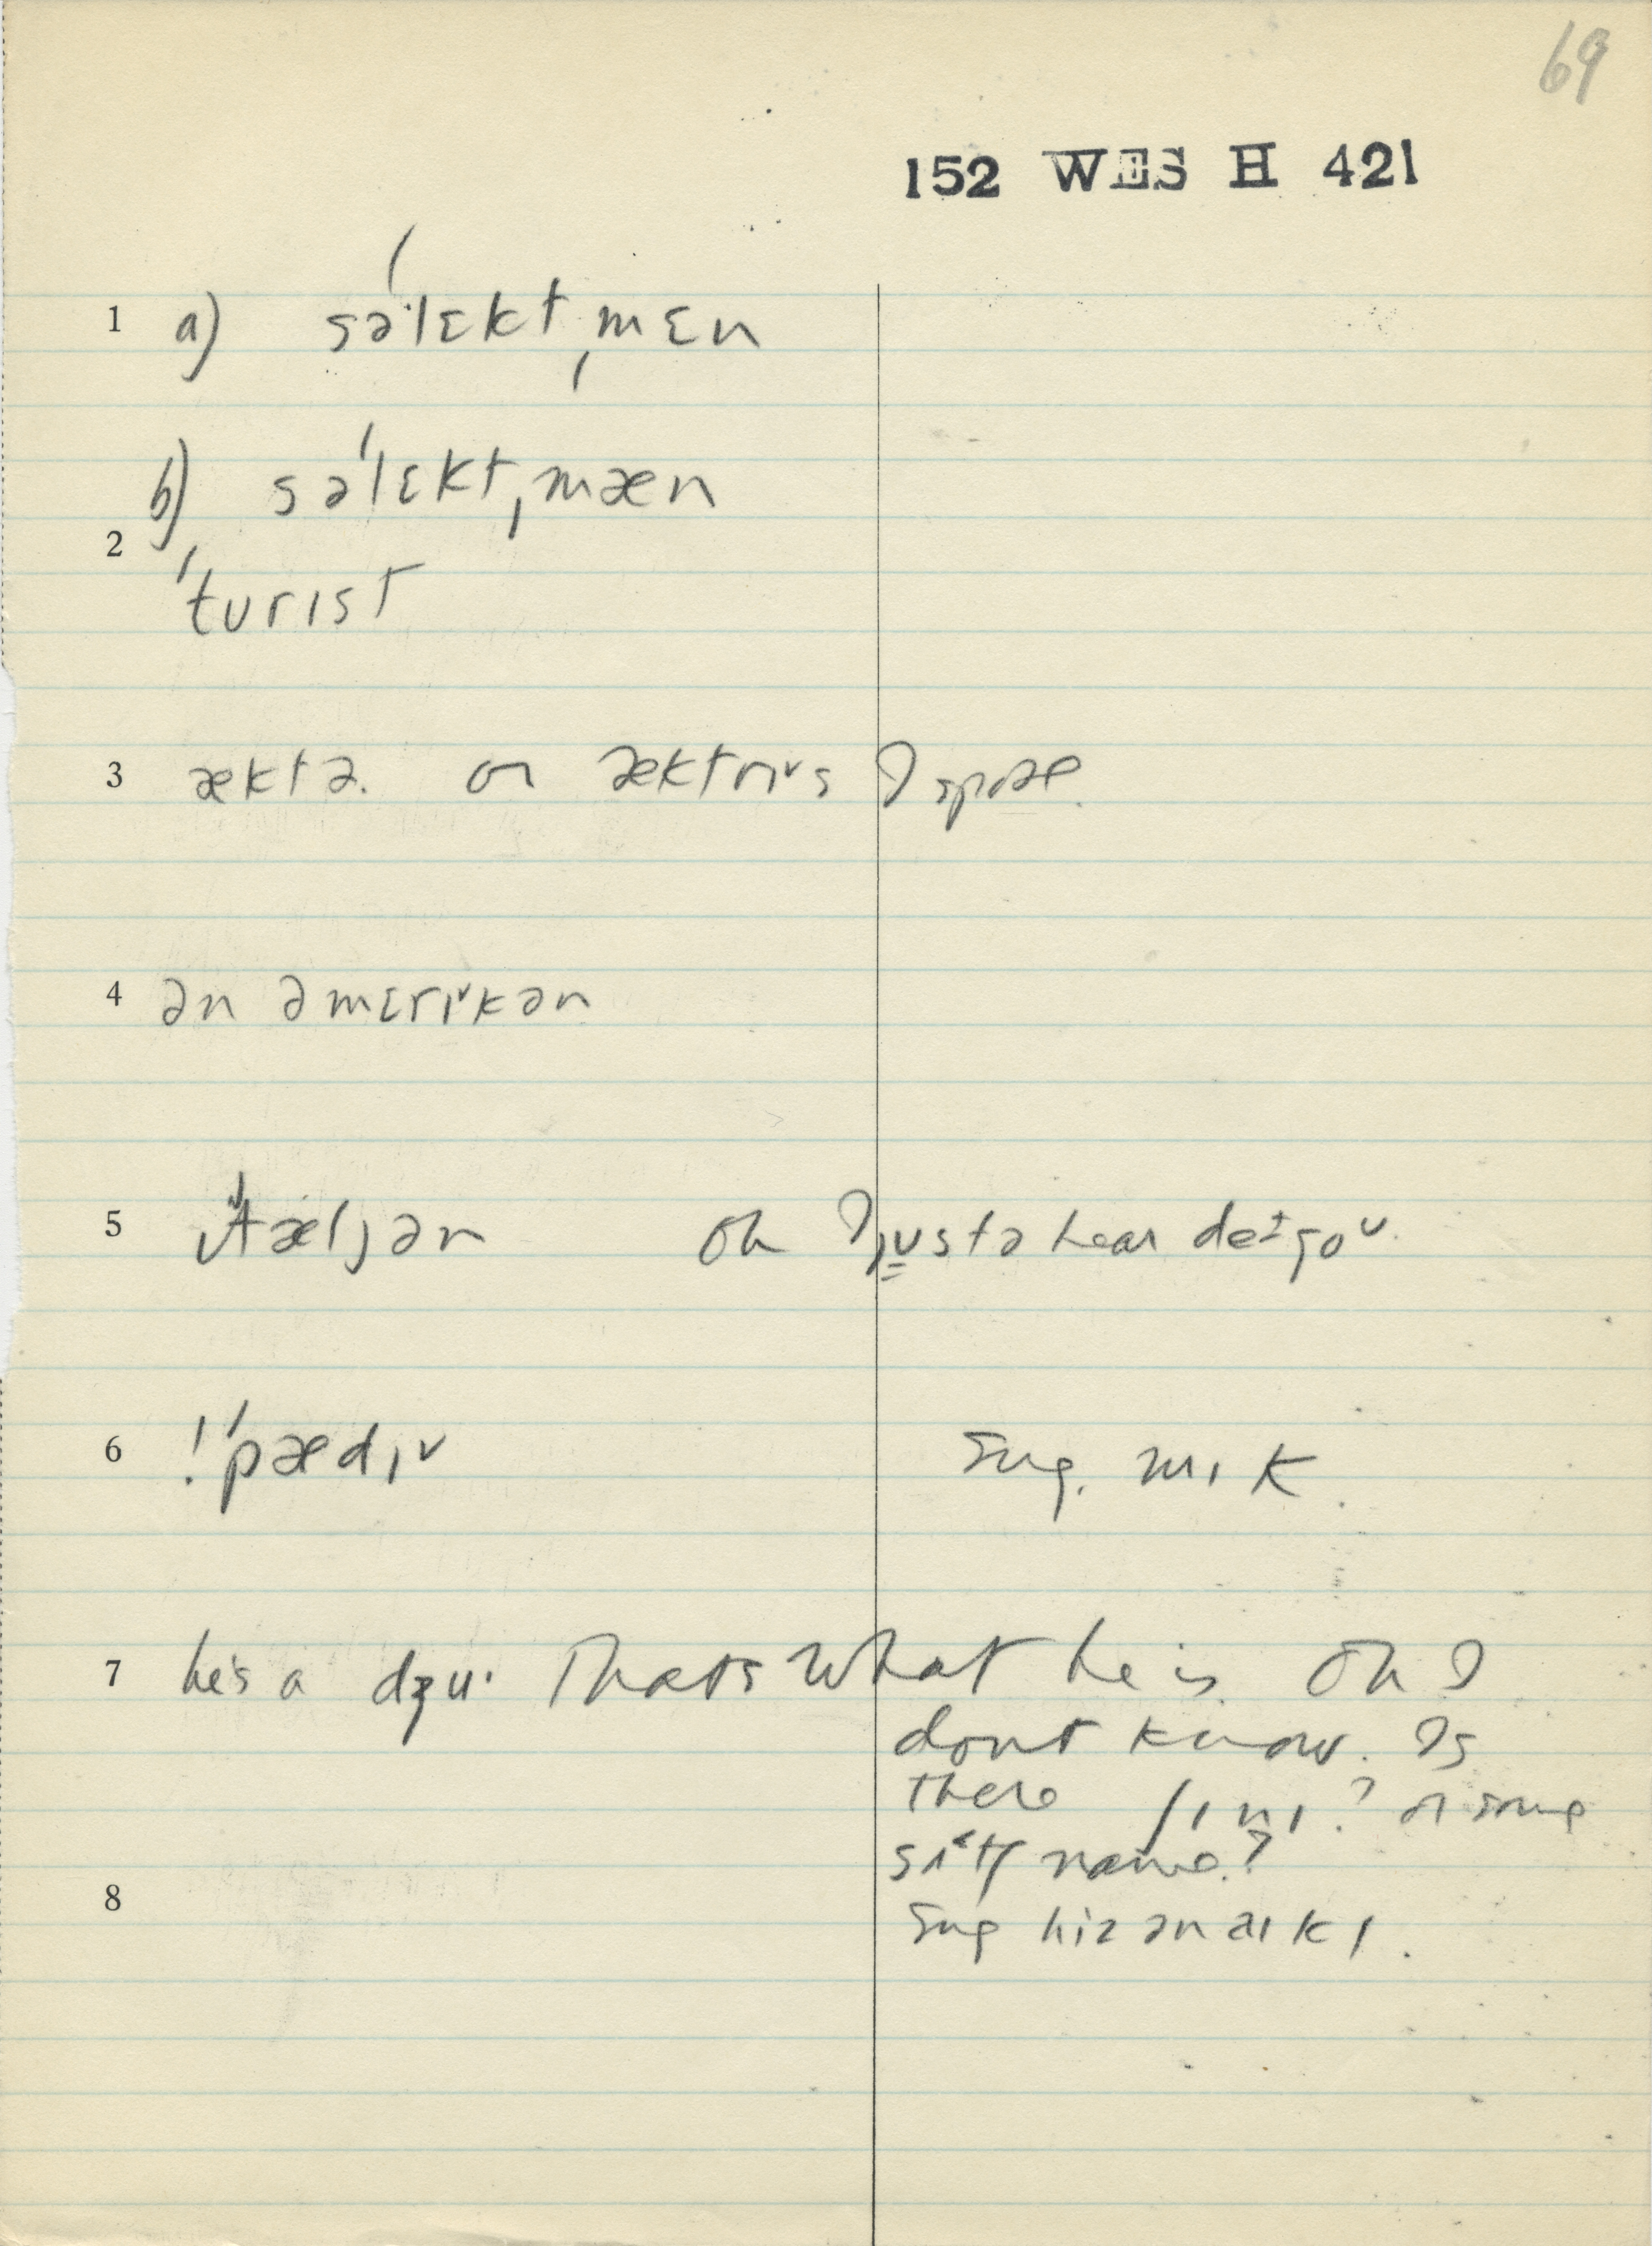 69
152 WES H 421
1 a) səˈlɛktˌmɛn
b) səˈlɛktˌmæn
2
ˈtʊrɪst
3 æktə. or æktrɪ˅s I spose.
4 ən əmɛrɪ˅kən
5 ɪ˅ˈtæljən oh I justə hear
6 !ˈpædɪ˅ sug. mɪk.
7 he's a dʒu· Thats what he is. Oh I
dont know. Is
there ʃɪnɪ? or some
name?
8
sug hiz ən aɪkɪ.